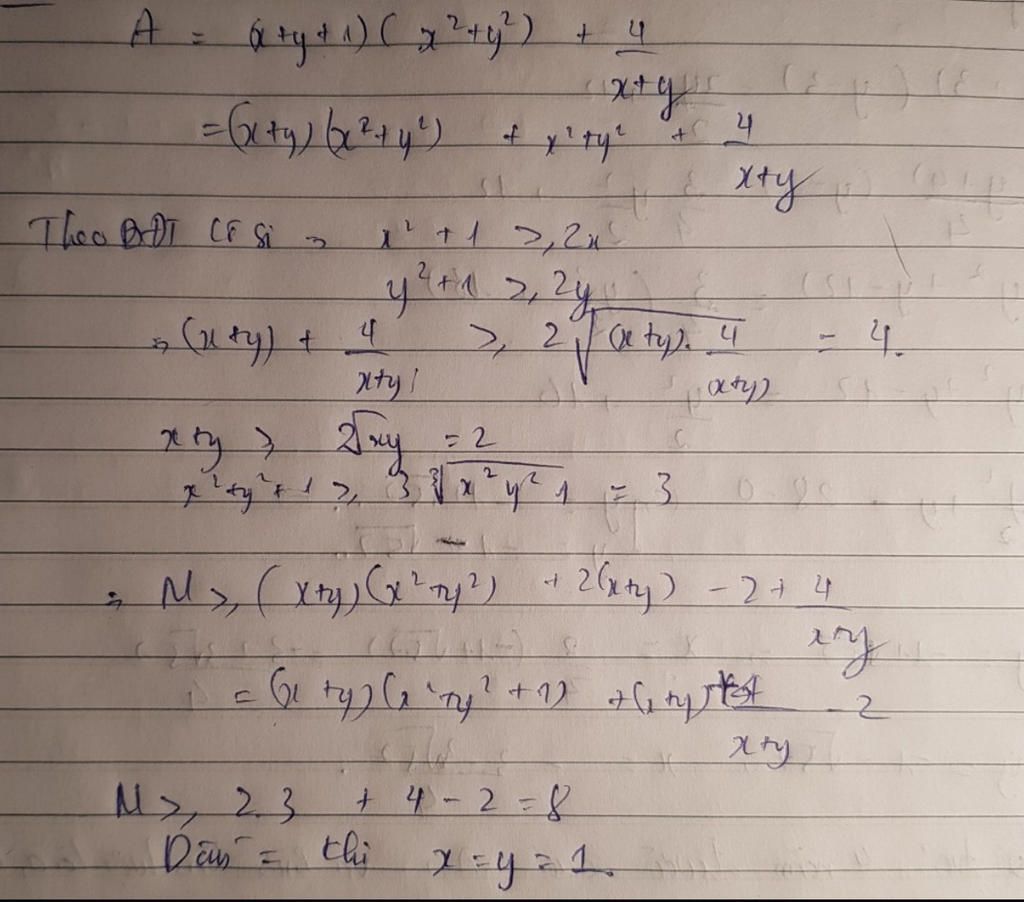 A = (x+y+1)(x²+y²) + 4/(x+y)
= (x+y)(x²+y²) + x²+y² + 4/(x+y)
Theo BĐT Cô Si ⇒ x² + 1 ≥ 2x
y² + 1 ≥ 2y
⇒ (x+y) + 4/(x+y) ≥ 2√((x+y).4/(x+y)) = 4.
x+y ≥ 2√xy = 2
x²+y²+1 ≥ 3∛(x²y²1) = 3
⇒ M ≥ (x+y)(x²+y²) + 2(x+y) - 2 + 4/(x+y)
= (x+y)(x²+y²+1) + (x+y) + 4/(x+y) - 2
M ≥ 2.3 + 4 - 2 = 8
Dấu = khi x = y = 1.